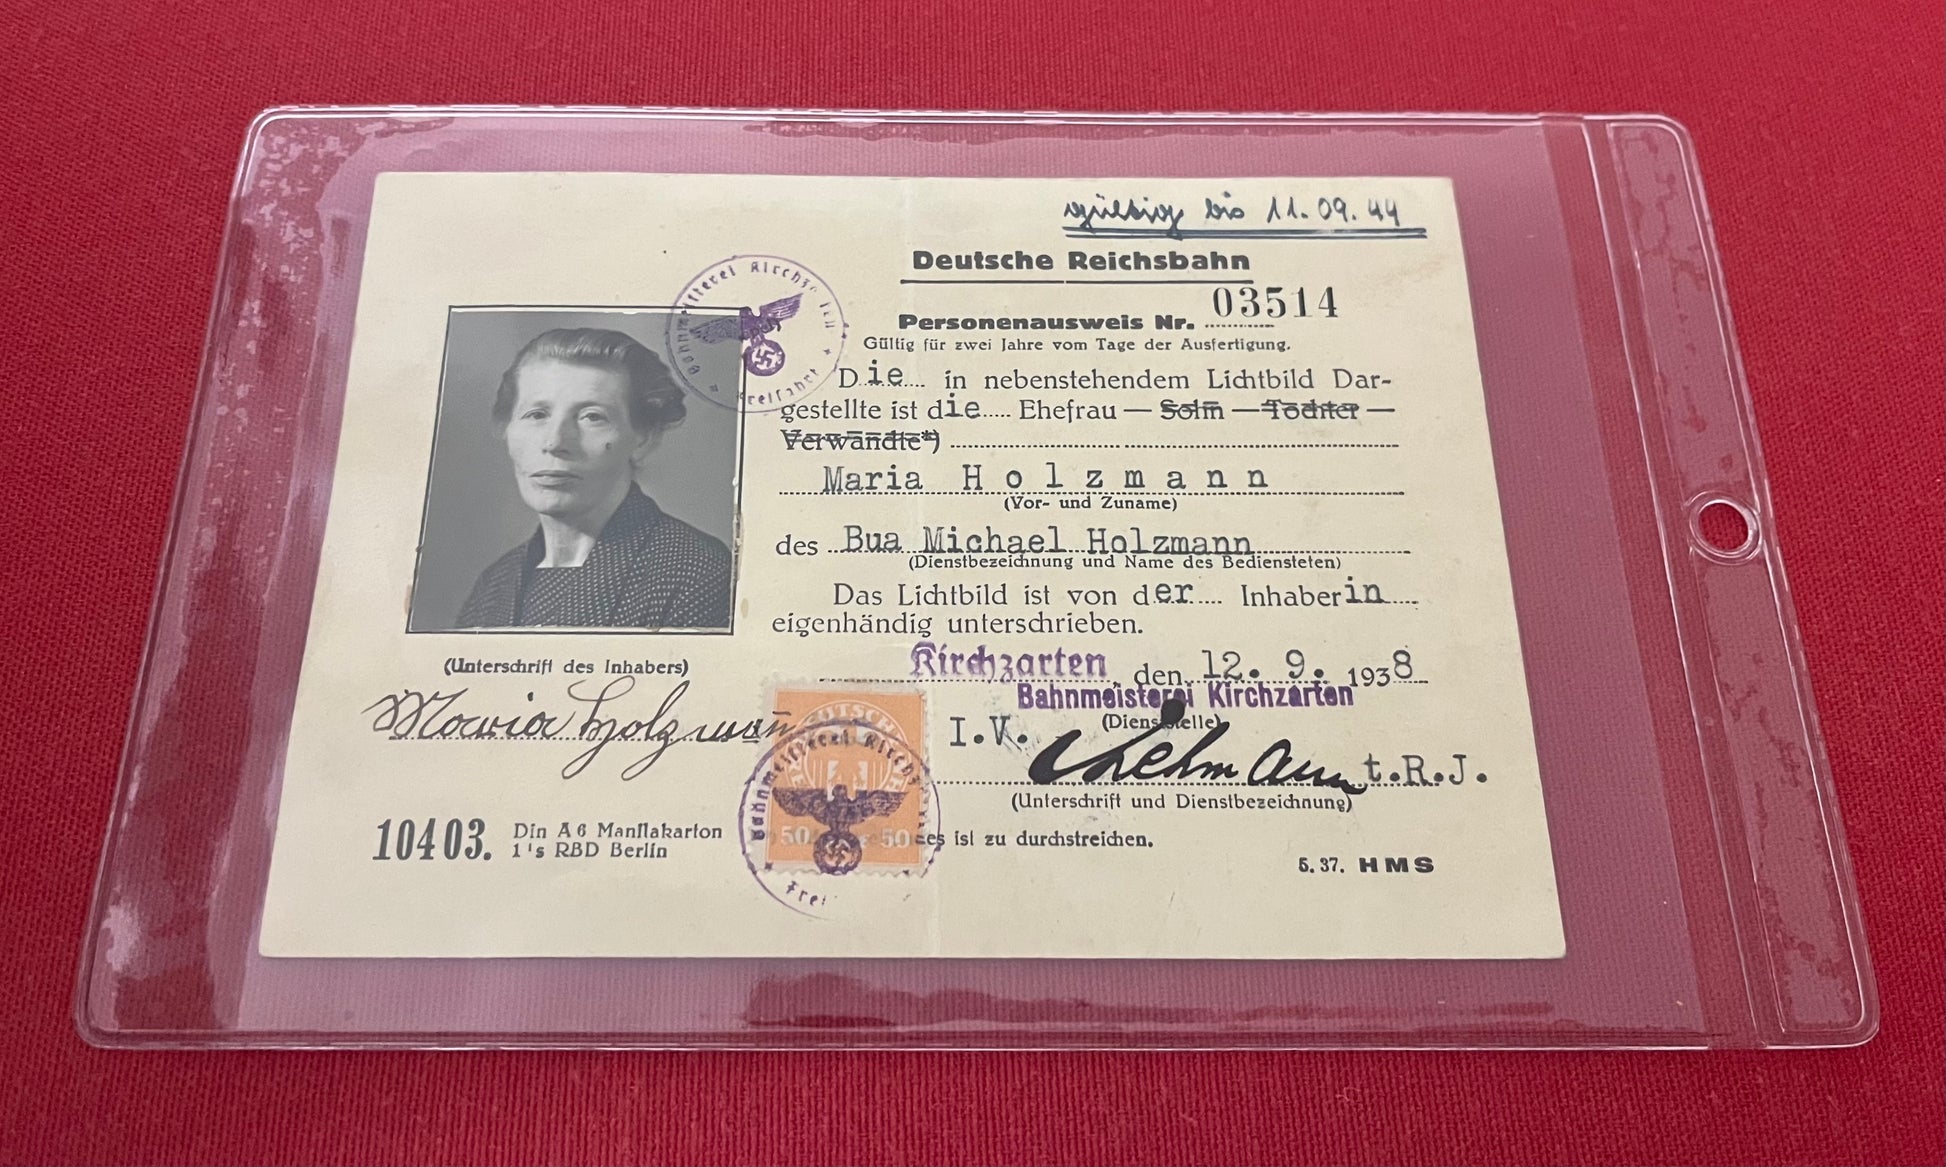 gültig bis 11.09.44
Deutsche Reichsbahn
Personenausweis Nr. 03514
Gültig für zwei Jahre vom Tage der Ausfertigung.
Die in nebenstehendem Lichtbild Dar-
gestellte ist die Ehefrau — Sohn — Tochter —
Verwandte*)
Maria Holzmann
(Vor- und Zuname)
des Bua Michael Holzmann
(Dienstbezeichnung und Name des Bediensteten)
Das Lichtbild ist von der Inhaberin
eigenhändig unterschrieben.
Kirchzarten, den 12. 9. 1938
Bahnmeisterei Kirchzarten
(Dienststelle)
I.V. Lehmann t.R.J.
(Unterschrift und Dienstbezeichnung)
es ist zu durchstreichen.
5. 37. HMS
Bahnmeisterei Kirchzarten
(Unterschrift des Inhabers)
Maria Holzmann
Bahnmeisterei Kirchz
50 50
10403. Din A6 Manilakarton
1's RBD Berlin